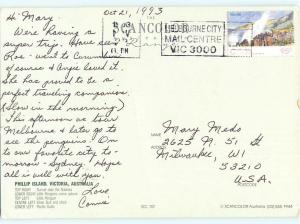 Oct 21, 1993
Hi Mary.
We're having a
super trip. Have seen
Roe - went to Currumbin
of course & Angie loved it.
She has proved to be a
perfect traveling companion.
(Slow in the morning)
This afternoon we tour
Melbourne & later go to
see the penguins. On
to our favorite city to-
morrow - Sydney. Hope
all is well with you.
Love
Connie
PHILLIP ISLAND, VICTORIA, AUSTRALIA
SCANCOLOR
6 PM
MELBOURNE CITY
MAIL CENTRE
VIC 3000
Mary Meds
2625 N. 51 St
Milwaukee, WI
53210
U.S.A.
POSTCODE
© SCANCOLOR Australia